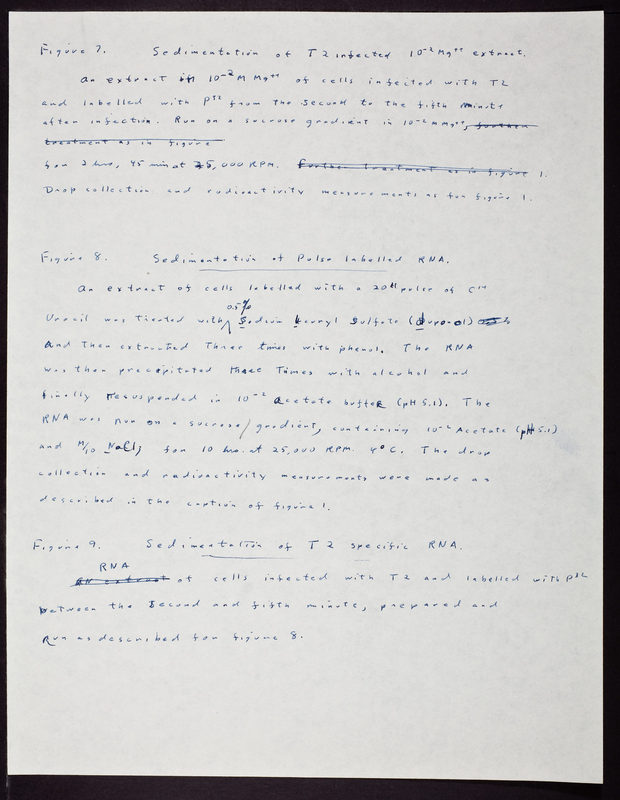 Figure 7. Sedimentation of T2 infected 10⁻² Mg⁺⁺ extract.
An extract in 10⁻² M Mg⁺⁺ of cells infected with T2
and labelled with P³² from the second to the fifth minute
after infection. Run on a sucrose gradient in 10⁻² M Mg⁺⁺, further
treatment as in figure
for 2 hrs, 45 min at 25,000 RPM. Further treatment as in figure 1.
Drop collection and radioactivity measurements as for figure 1.
Figure 8. Sedimentation of Pulse labelled RNA.
An extract of cells labelled with a 20" pulse of C¹⁴
0.5%
Uracil was treated with Sodium lauryl Sulfate (duponol)
and then extracted three times with phenol. The RNA
was then precipitated three times with alcohol and
finally resuspended in 10⁻² acetate buffer (pH 5.1). The
RNA was run on a sucrose gradient, containing 10⁻² Acetate (pH 5.1)
and M/10 NaCl, for 10 hrs. at 25,000 RPM. 4°C. The drop
collection and radioactivity measurements were made as
described in the caption of figure 1.
Figure 9. Sedimentation of T2 specific RNA.
RNA
An extract of cells infected with T2 and labelled with P³²
between the second and fifth minute, prepared and
Run as described for figure 8.